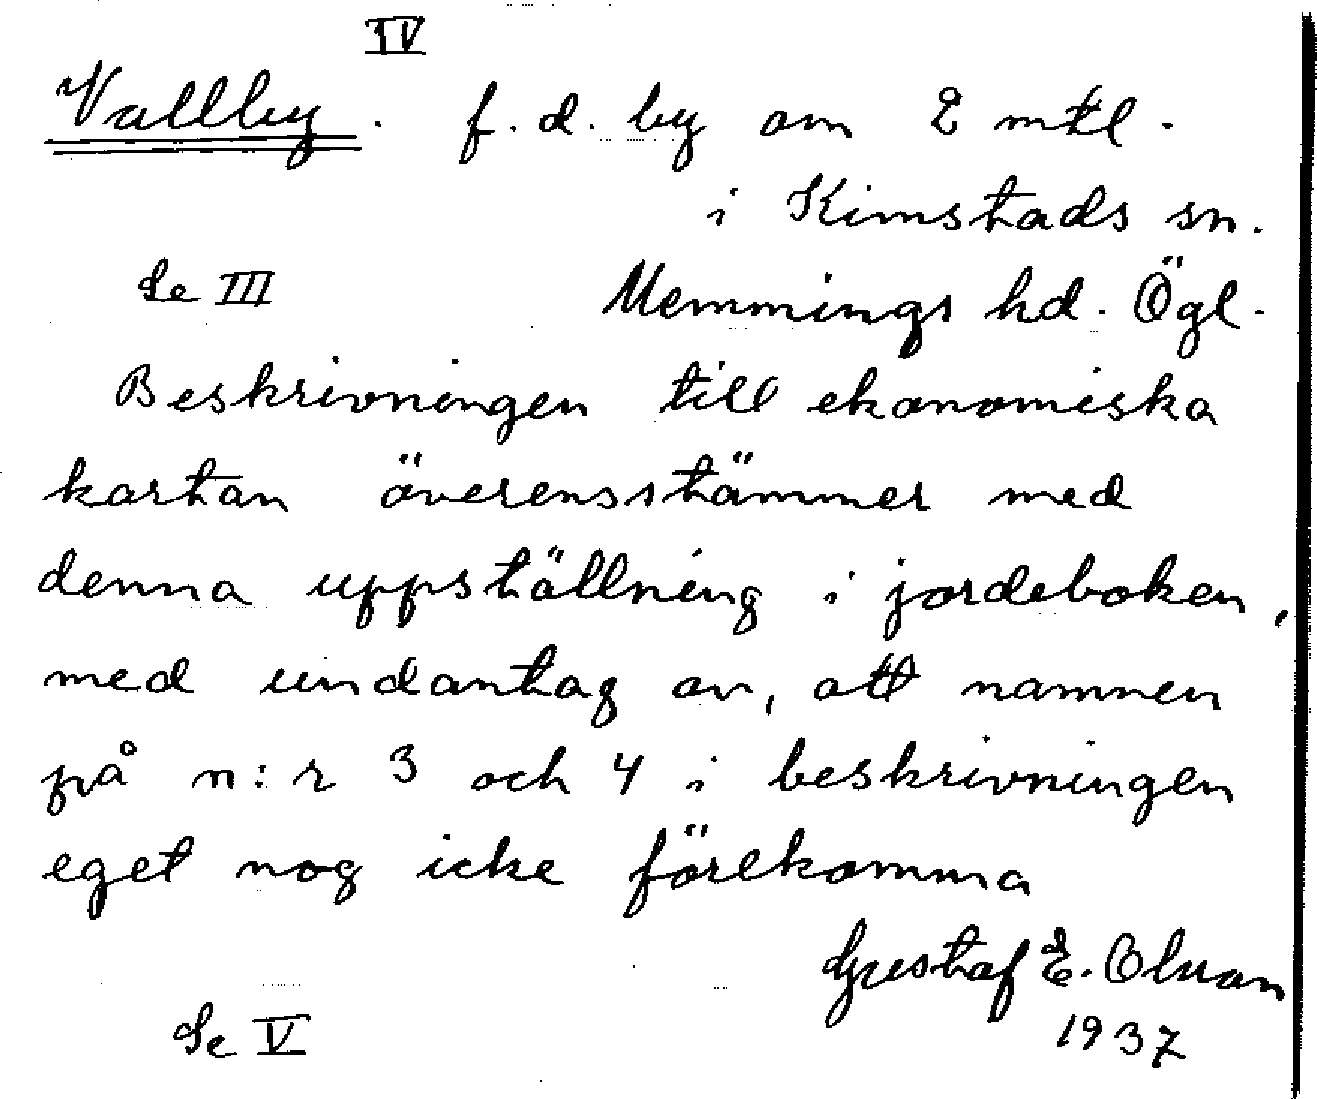 IV
Vallby. f.d. by om 2 mtl.
i Kimstads sn.
Se III Memmings hd. Ögl.
Beskrivningen till ekonomiska
kartan överensstämmer med
denna uppställning i jordeboken,
med undantag av, att namnen
på n:r 3 och 4 i beskrivningen
eget nog icke förekomma
Gustaf E. Olsson
1937
Se V